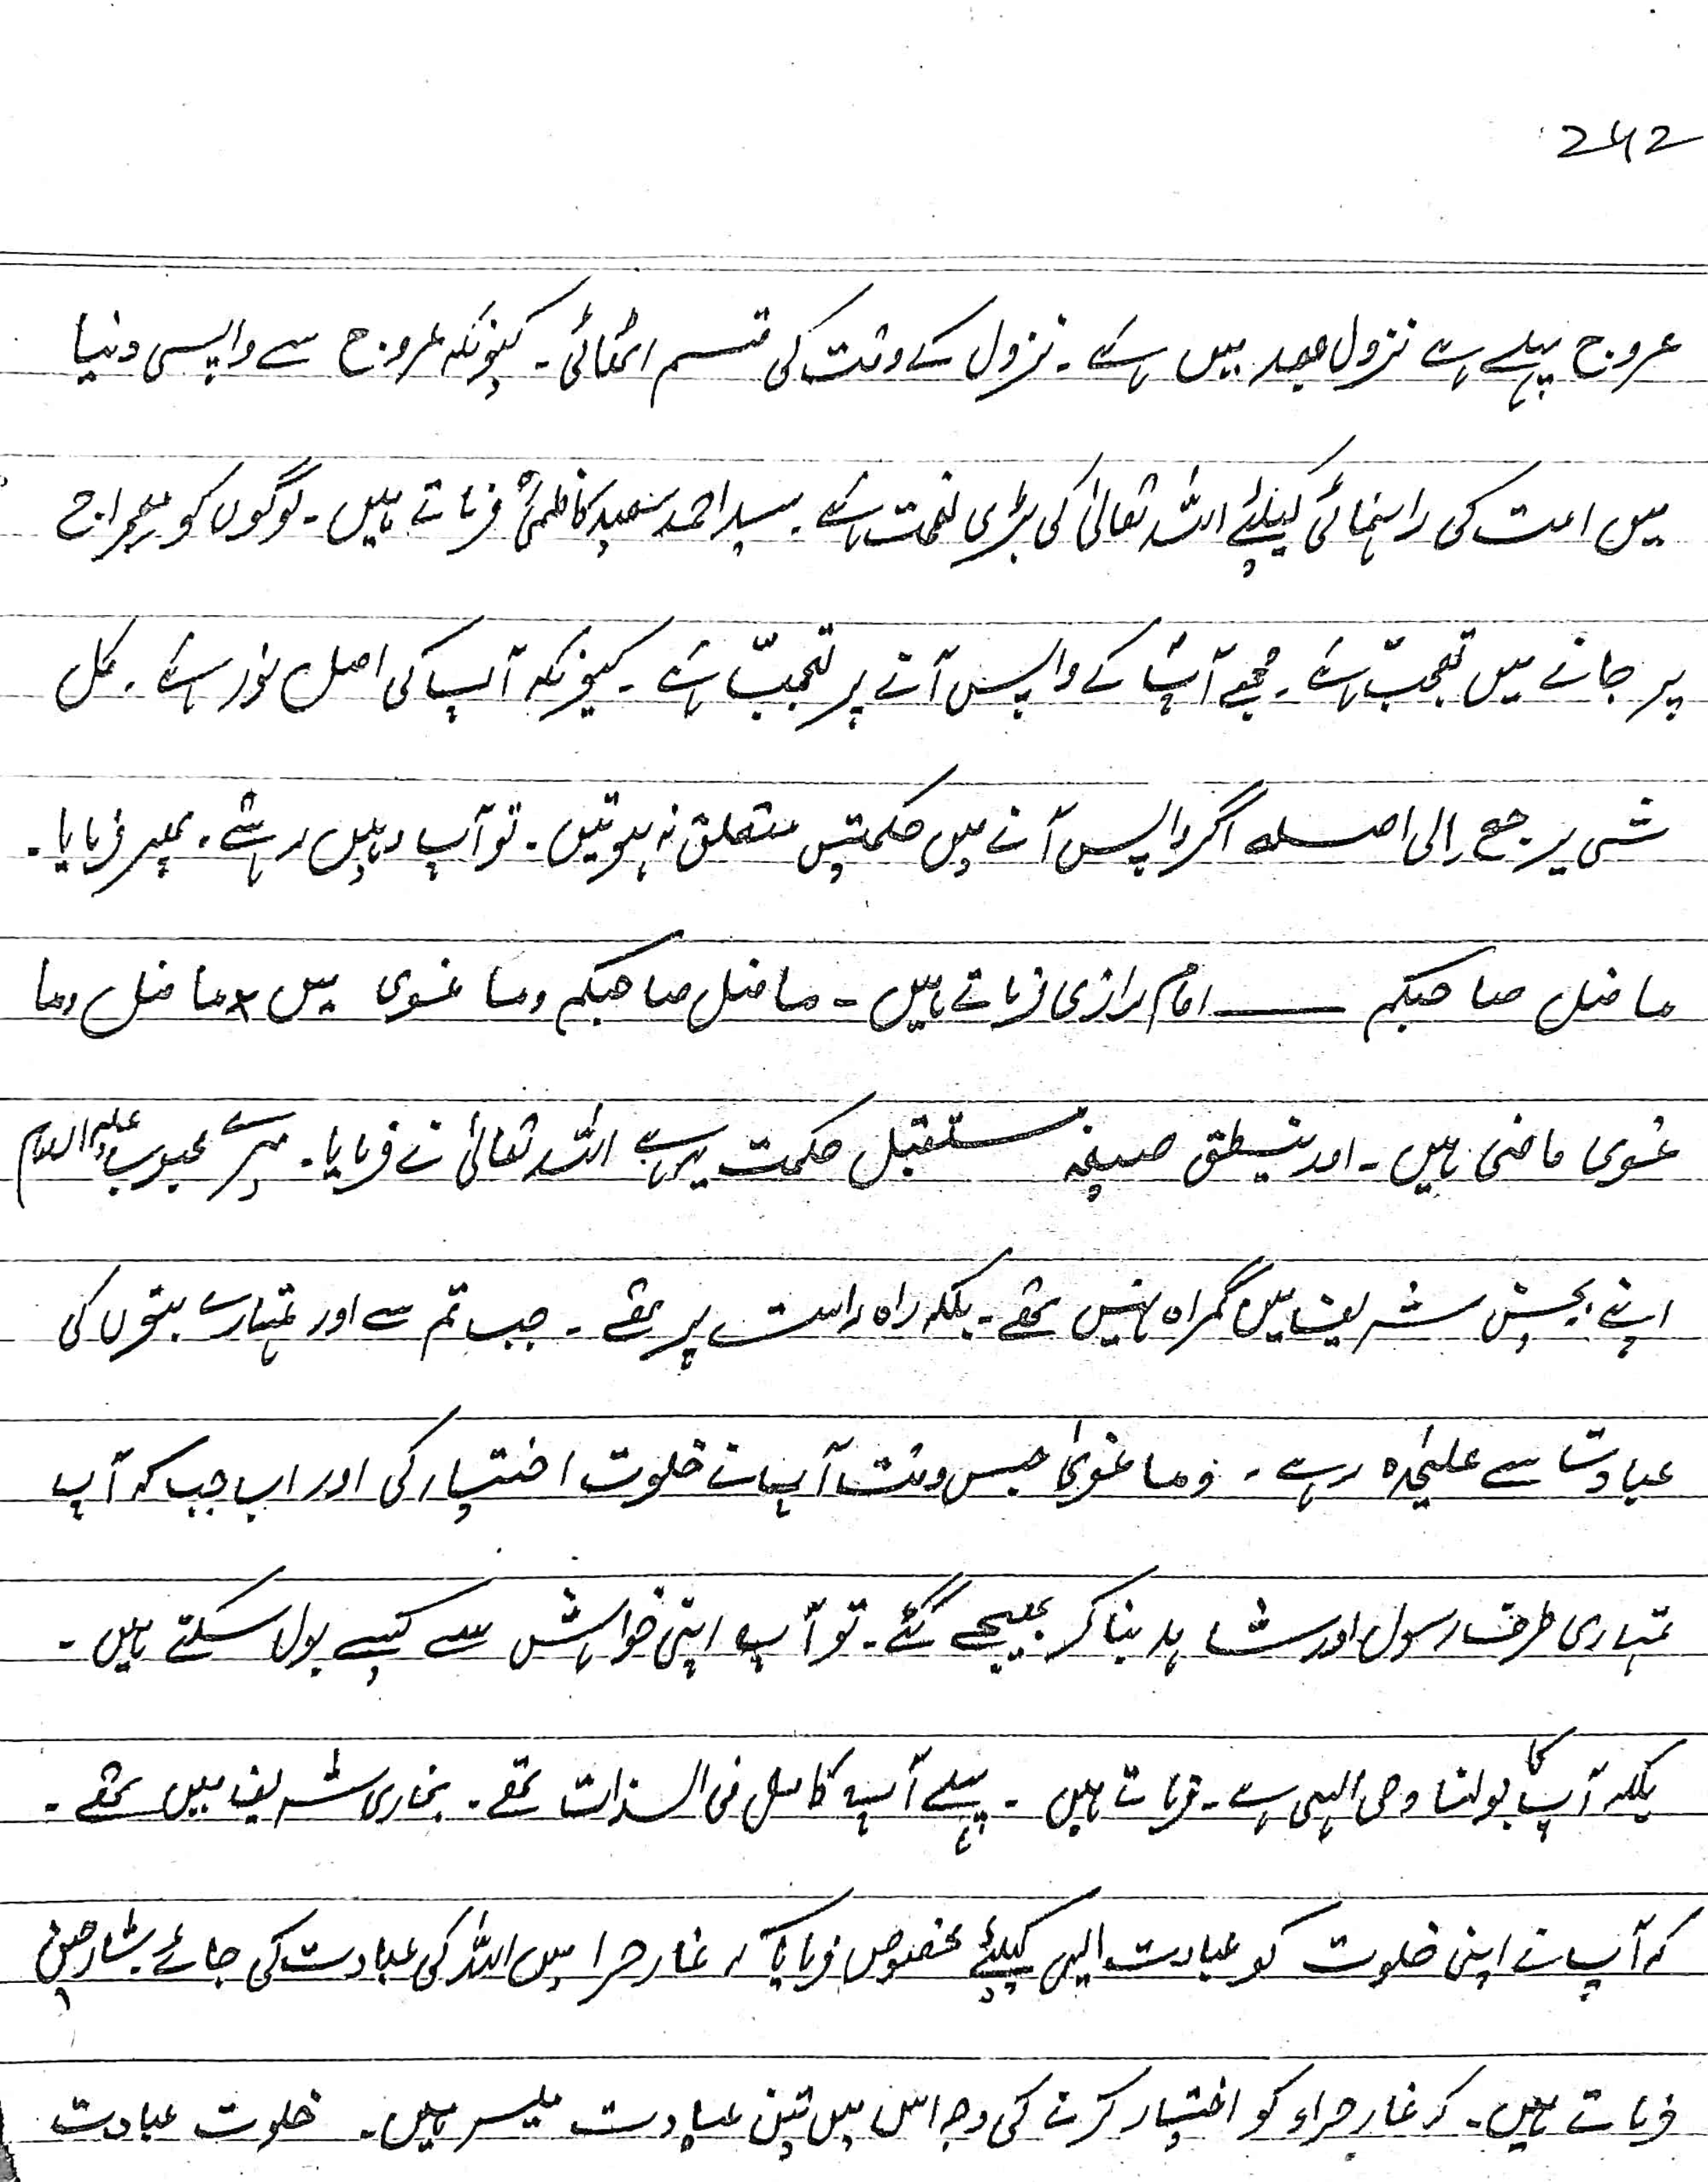 242
عروج پہلے ہے نزول بعد میں ہے۔ نزول کے وقت کی قسم اٹھائی۔ کیونکہ عروج سے واپسی دنیا
میں امت کی راہنمائی کیلئے اللہ تعالیٰ کی بڑی نعمت ہے۔ سید احمد سعید کاظمیؒ فرماتے ہیں۔ لوگوں کو معراج
پر جانے میں تعجبّ ہے۔ مجھے آپؐ کے واپس آنے پر تعجبّ ہے۔ کیونکہ آپ کی اصل نور ہے۔ کل
شی یرجع اِلی اصلہ اگر واپس آنے میں حکمتیں متعلق نہ ہوتیں۔ تو آپ وہیں رہتے۔ پھر فرمایا۔
ما ضل صاحبکم ــــــ امام رازی فرماتے ہیں۔ ما ضل صاحبکم وما غوی میں ما ضل وما
غوی ماضی ہیں۔ اور ینطق صیغہ مستقبل حکمت یہ ہے اللہ تعالیٰ نے فرمایا۔ میرے محبوب علیہ السلام
اپنے بچپن شریف میں گمراہ نہیں تھے۔ بلکہ راہ راست پر تھے۔ جب تم سے اور تمہارے بتوں کی
عبادت سے علیحٰدہ رہے۔ وما غویٰ جس وقت آپ نے خلوت اختیار کی اور اب جب کہ آپ
تمہاری طرف رسول اور شاہد بنا کر بھیجے گئے۔ تو آپ اپنی خواہش سے کیسے بول سکتے ہیں۔
بلکہ آپ کا بولنا وحی الہی ہے۔ فرماتے ہیں۔ پہلے آپ کامل فی الذات تھے۔ بخاری شریف میں تھے۔
کہ آپ نے اپنی خلوت کو عبادت الہی کیلئے مخصوص فرمایا کہ غار حرا میں اللہ کی عبادت کی جائے شارحین
فرماتے ہیں۔ کہ غار حراء کو اختیار کرنے کی وجہ اس میں تین عبادت میسر ہیں۔ خلوت عبادت